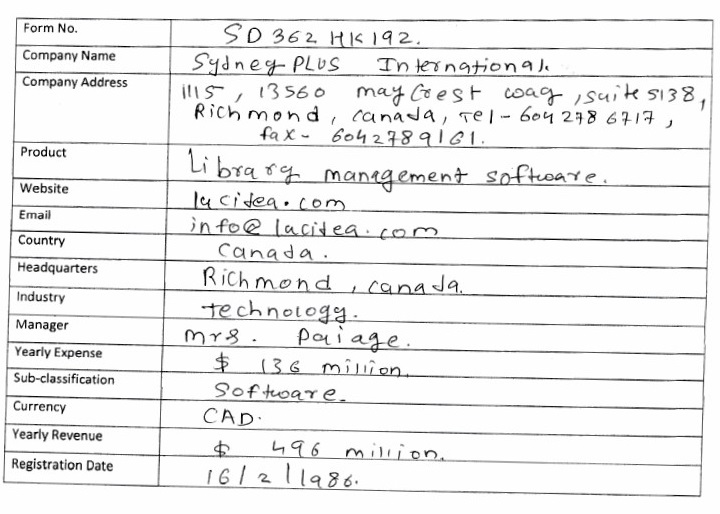 Form No. SD362HK192.
Company Name Sydney PLUS International.
Company Address 1115, 13560 maycrest way, suite 5138,
Richmond, canada, Tel- 604 278 6717,
fax- 6042789161.
Product Library management software.
Website lucidea.com
Email info@lucidea.com
Country Canada.
Headquarters Richmond, canada.
Industry technology.
Manager mrs. Paiage.
Yearly Expense $ 136 million.
Sub-classification Software.
Currency CAD.
Yearly Revenue $ 496 million.
Registration Date 16/2/1986.